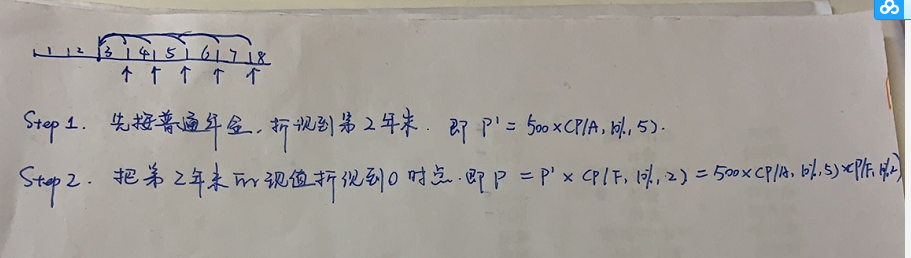 1 2 3 4 5 6 7 8
Step 1. 先按普通年金,折现到第2年末. 即 P' = 500×(P/A, 10%, 5).
Step 2. 把第2年末的现值折现到0时点.即 P = P' × (P/F, 10%, 2) = 500×(P/A, 10%, 5)×(P/F, 10%, 2)